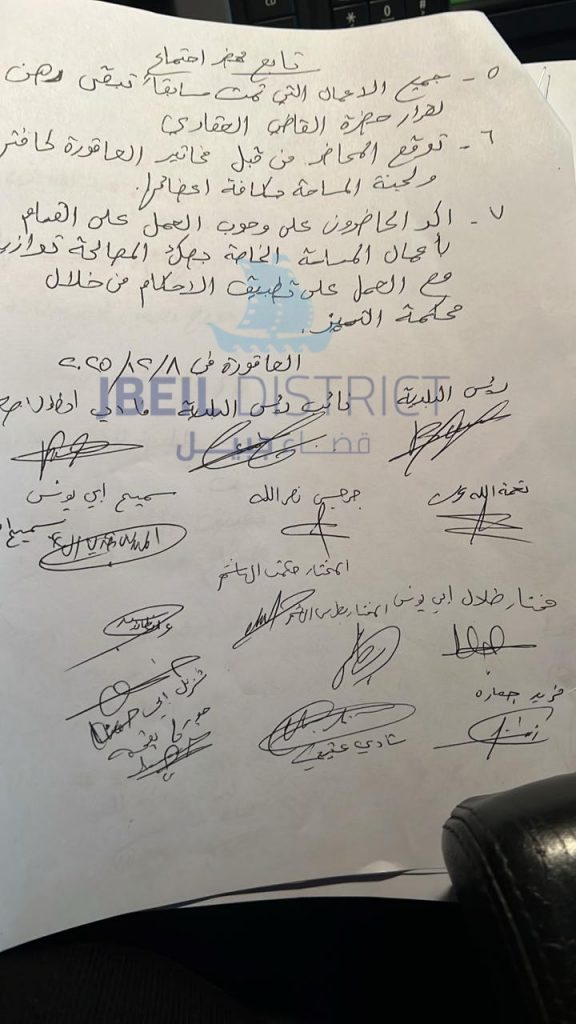 تابع محضر اجتماع
٥ - جميع الاعمال التي تمت سابقاً تبقى رهن
لقرار حضرة القاضي العقاري
٦ - توقع المحاضر من قبل مخاتير العاقورة كافة
ولجنة المساحة بكافة اعضائها.
٧ - اكد الحاضرون على وجوب العمل على القيام
باعمال المساحة الخاصة بصك المصالحة توازياً
مع العمل على تطبيق الاحكام من خلال
محكمة التمييز.
العاقورة في ٢٠٢٥/١٢/٨
JBEIL DISTRICT
قضاء جبيل
رئيس البلدية نائب رئيس البلدية
نعمة الله جرجس نصرالله سميح ابي يونس
المختار حكمت الهاشم
مختار طلال ابي يونس المختار
فريد جعاره
شادي